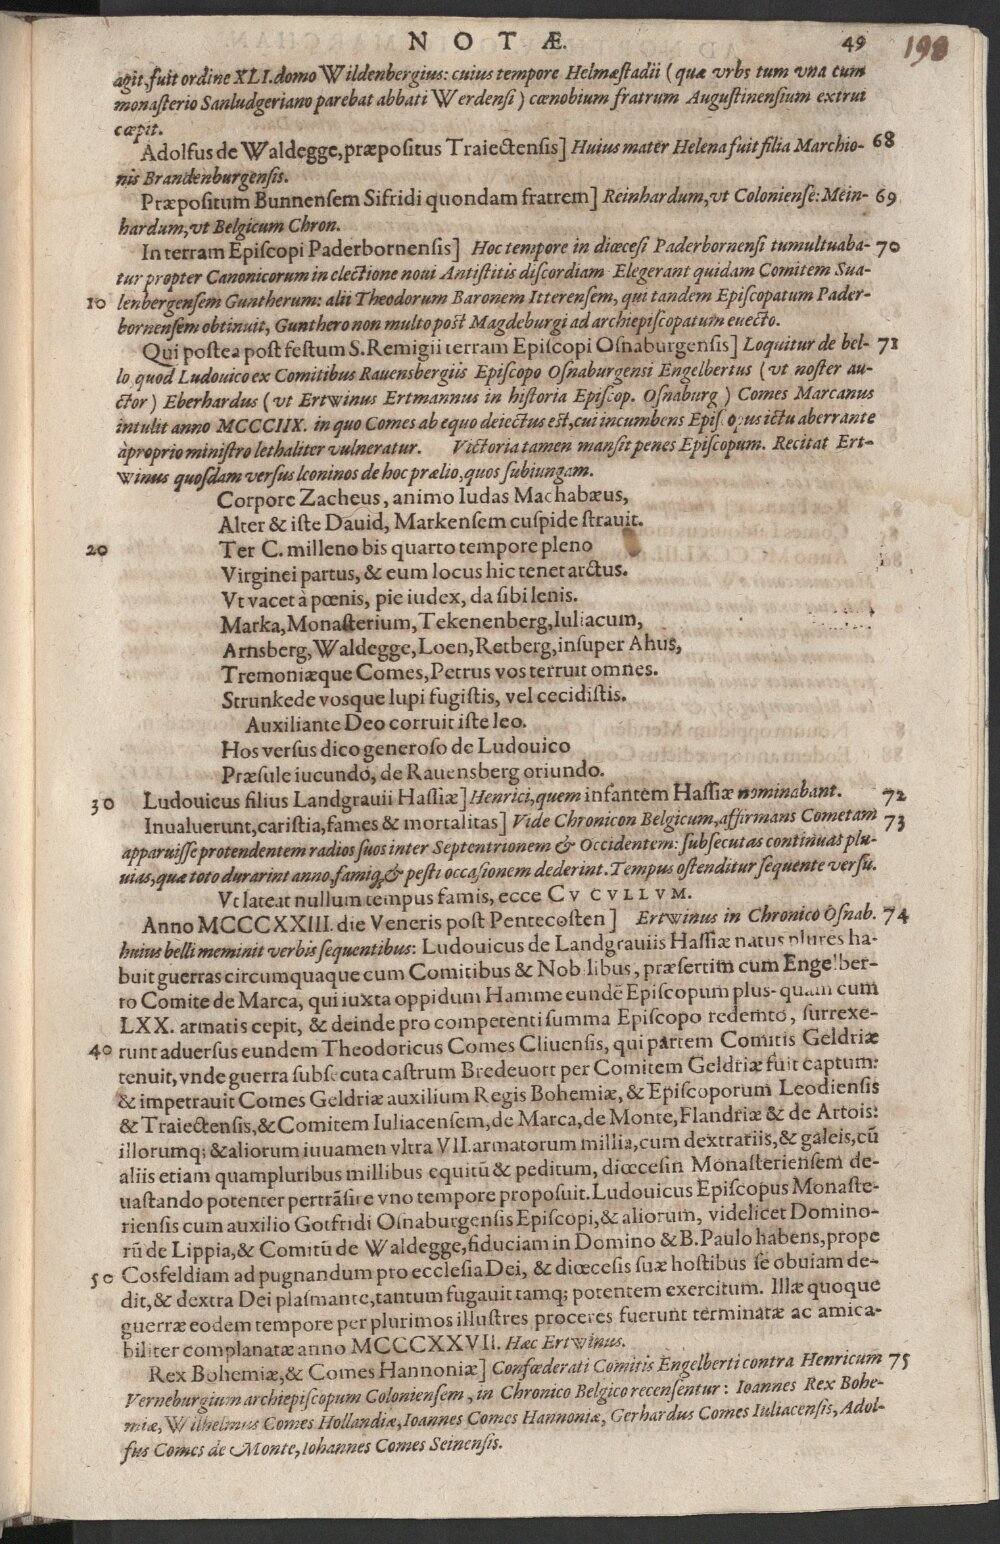 NOTÆ. 49 198
agit, fuit ordine XLI. domo Wildenbergius: cuius tempore Helmæstadii (quæ vrbs tum vna cum
monasterio Sanludgeriano parebat abbati Werdensi) cœnobium fratrum Augustinensium extrui
cœpit.
Adolfus de Waldegge, præpositus Traiectensis] Huius mater Helena fuit filia Marchio- 68
nis Brandenburgensis.
Præpositum Bunnensem Sifridi quondam fratrem] Reinhardum, vt Coloniense: Mein- 69
hardum, vt Belgicum Chron.
In terram Episcopi Paderbornensis] Hoc tempore in diœcesi Paderbornensi tumultuaba- 70
tur propter Canonicorum in electione noui Antistitis discordiam Elegerant quidam Comitem Sua-
10 lenbergensem Guntherum: alii Theodorum Baronem Itterensem, qui tandem Episcopatum Pader-
bornensem obtinuit, Gunthero non multo post Magdeburgi ad archiepiscopatum euecto.
Qui postea post festum S. Remigii terram Episcopi Osnaburgensis] Loquitur de bel- 71
lo quod Ludouico ex Comitibus Rauensbergiis Episcopo Osnaburgensi Engelbertus (vt noster au-
ctor) Eberhardus (vt Ertwinus Ertmannus in historia Episcop. Osnaburg) Comes Marcanus
intulit anno MCCCIIX. in quo Comes ab equo deiectus est, cui incumbens Episcopus ictu aberrante
à proprio ministro lethaliter vulneratur. Victoria tamen mansit penes Episcopum. Recitat Ert-
winus quosdam versus leoninos de hoc prælio, quos subiungam.
Corpore Zacheus, animo Iudas Machabæus,
Alter & iste Dauid, Markensem cuspide strauit.
20 Ter C. milleno bis quarto tempore pleno
Virginei partus, & eum locus hic tenet arctus.
Vt vacet à pœnis, pie iudex, da sibi lenis.
Marka, Monasterium, Tekenenberg, Iuliacum,
Arnsberg, Waldegge, Loen, Retberg, insuper Ahus,
Tremoniæque Comes, Petrus vos terruit omnes.
Strunkede vosque lupi fugistis, vel cecidistis.
Auxiliante Deo corruit iste leo.
Hos versus dico generoso de Ludouico
Præsule iucundo, de Rauensberg oriundo.
30 Ludouicus filius Landgrauii Hassiæ] Henrici, quem infantem Hassiæ nominabant. 72
Inualuerunt, caristia, fames & mortalitas] Vide Chronicon Belgicum, affirmans Cometam 73
apparuisse protendentem radios suos inter Septentrionem & Occidentem: subsecutas continuas plu-
uias, quæ toto durarint anno, famiq; & pesti occasionem dederint. Tempus ostenditur sequente versu.
Vt lateat nullum tempus famis, ecce CV CVLLVM.
Anno MCCCXXIII. die Veneris post Pentecosten] Ertwinus in Chronico Osnab. 74
huius belli meminit verbis sequentibus: Ludouicus de Landgrauiis Hassiæ natus plures ha-
buit guerras circumquaque cum Comitibus & Nobilibus, præsertim cum Engelber-
to Comite de Marca, qui iuxta oppidum Hamme eundẽ Episcopum plus-quam cum
LXX. armatis cepit, & deinde pro competenti summa Episcopo redemto, surrexe-
40 runt aduersus eundem Theodoricus Comes Cliuensis, qui partem Comitis Geldriæ
tenuit, vnde guerra subsecuta castrum Bredeuort per Comitem Geldriæ fuit captum:
& impetrauit Comes Geldriæ auxilium Regis Bohemiæ, & Episcoporum Leodiensis
& Traiectensis, & Comitem Iuliacensem, de Marca, de Monte, Flandriæ & de Artois:
illorumq; & aliorum iuuamen vltra VII. armatorum millia, cum dextrariis, & galeis, cũ
aliis etiam quampluribus millibus equitũ & peditum, diœcesin Monasteriensem de-
uastando potenter pertrãsire vno tempore proposuit. Ludouicus Episcopus Monaste-
riensis cum auxilio Gotfridi Osnaburgensis Episcopi, & aliorum, videlicet Domino-
rũ de Lippia, & Comitũ de Waldegge, fiduciam in Domino & B. Paulo habens, prope
50 Cosfeldiam ad pugnandum pro ecclesia Dei, & diœcesis suæ hostibus se obuiam de-
dit, & dextra Dei plasmante, tantum fugauit tamq; potentem exercitum. Illæ quoque
guerræ eodem tempore per plurimos illustres proceres fuerunt terminatæ ac amica-
biliter complanatæ anno MCCCXXVII. Hæc Ertwinus.
Rex Bohemiæ, & Comes Hannoniæ] Confœderati Comitis Engelberti contra Henricum 75
Verneburgium archiepiscopum Coloniensem, in Chronico Belgico recensentur: Ioannes Rex Bohe-
miæ, Wilhelmus Comes Hollandiæ, Ioannes Comes Hannoniæ, Gerhardus Comes Iuliacensis, Adol-
fus Comes de Monte, Iohannes Comes Seinensis.